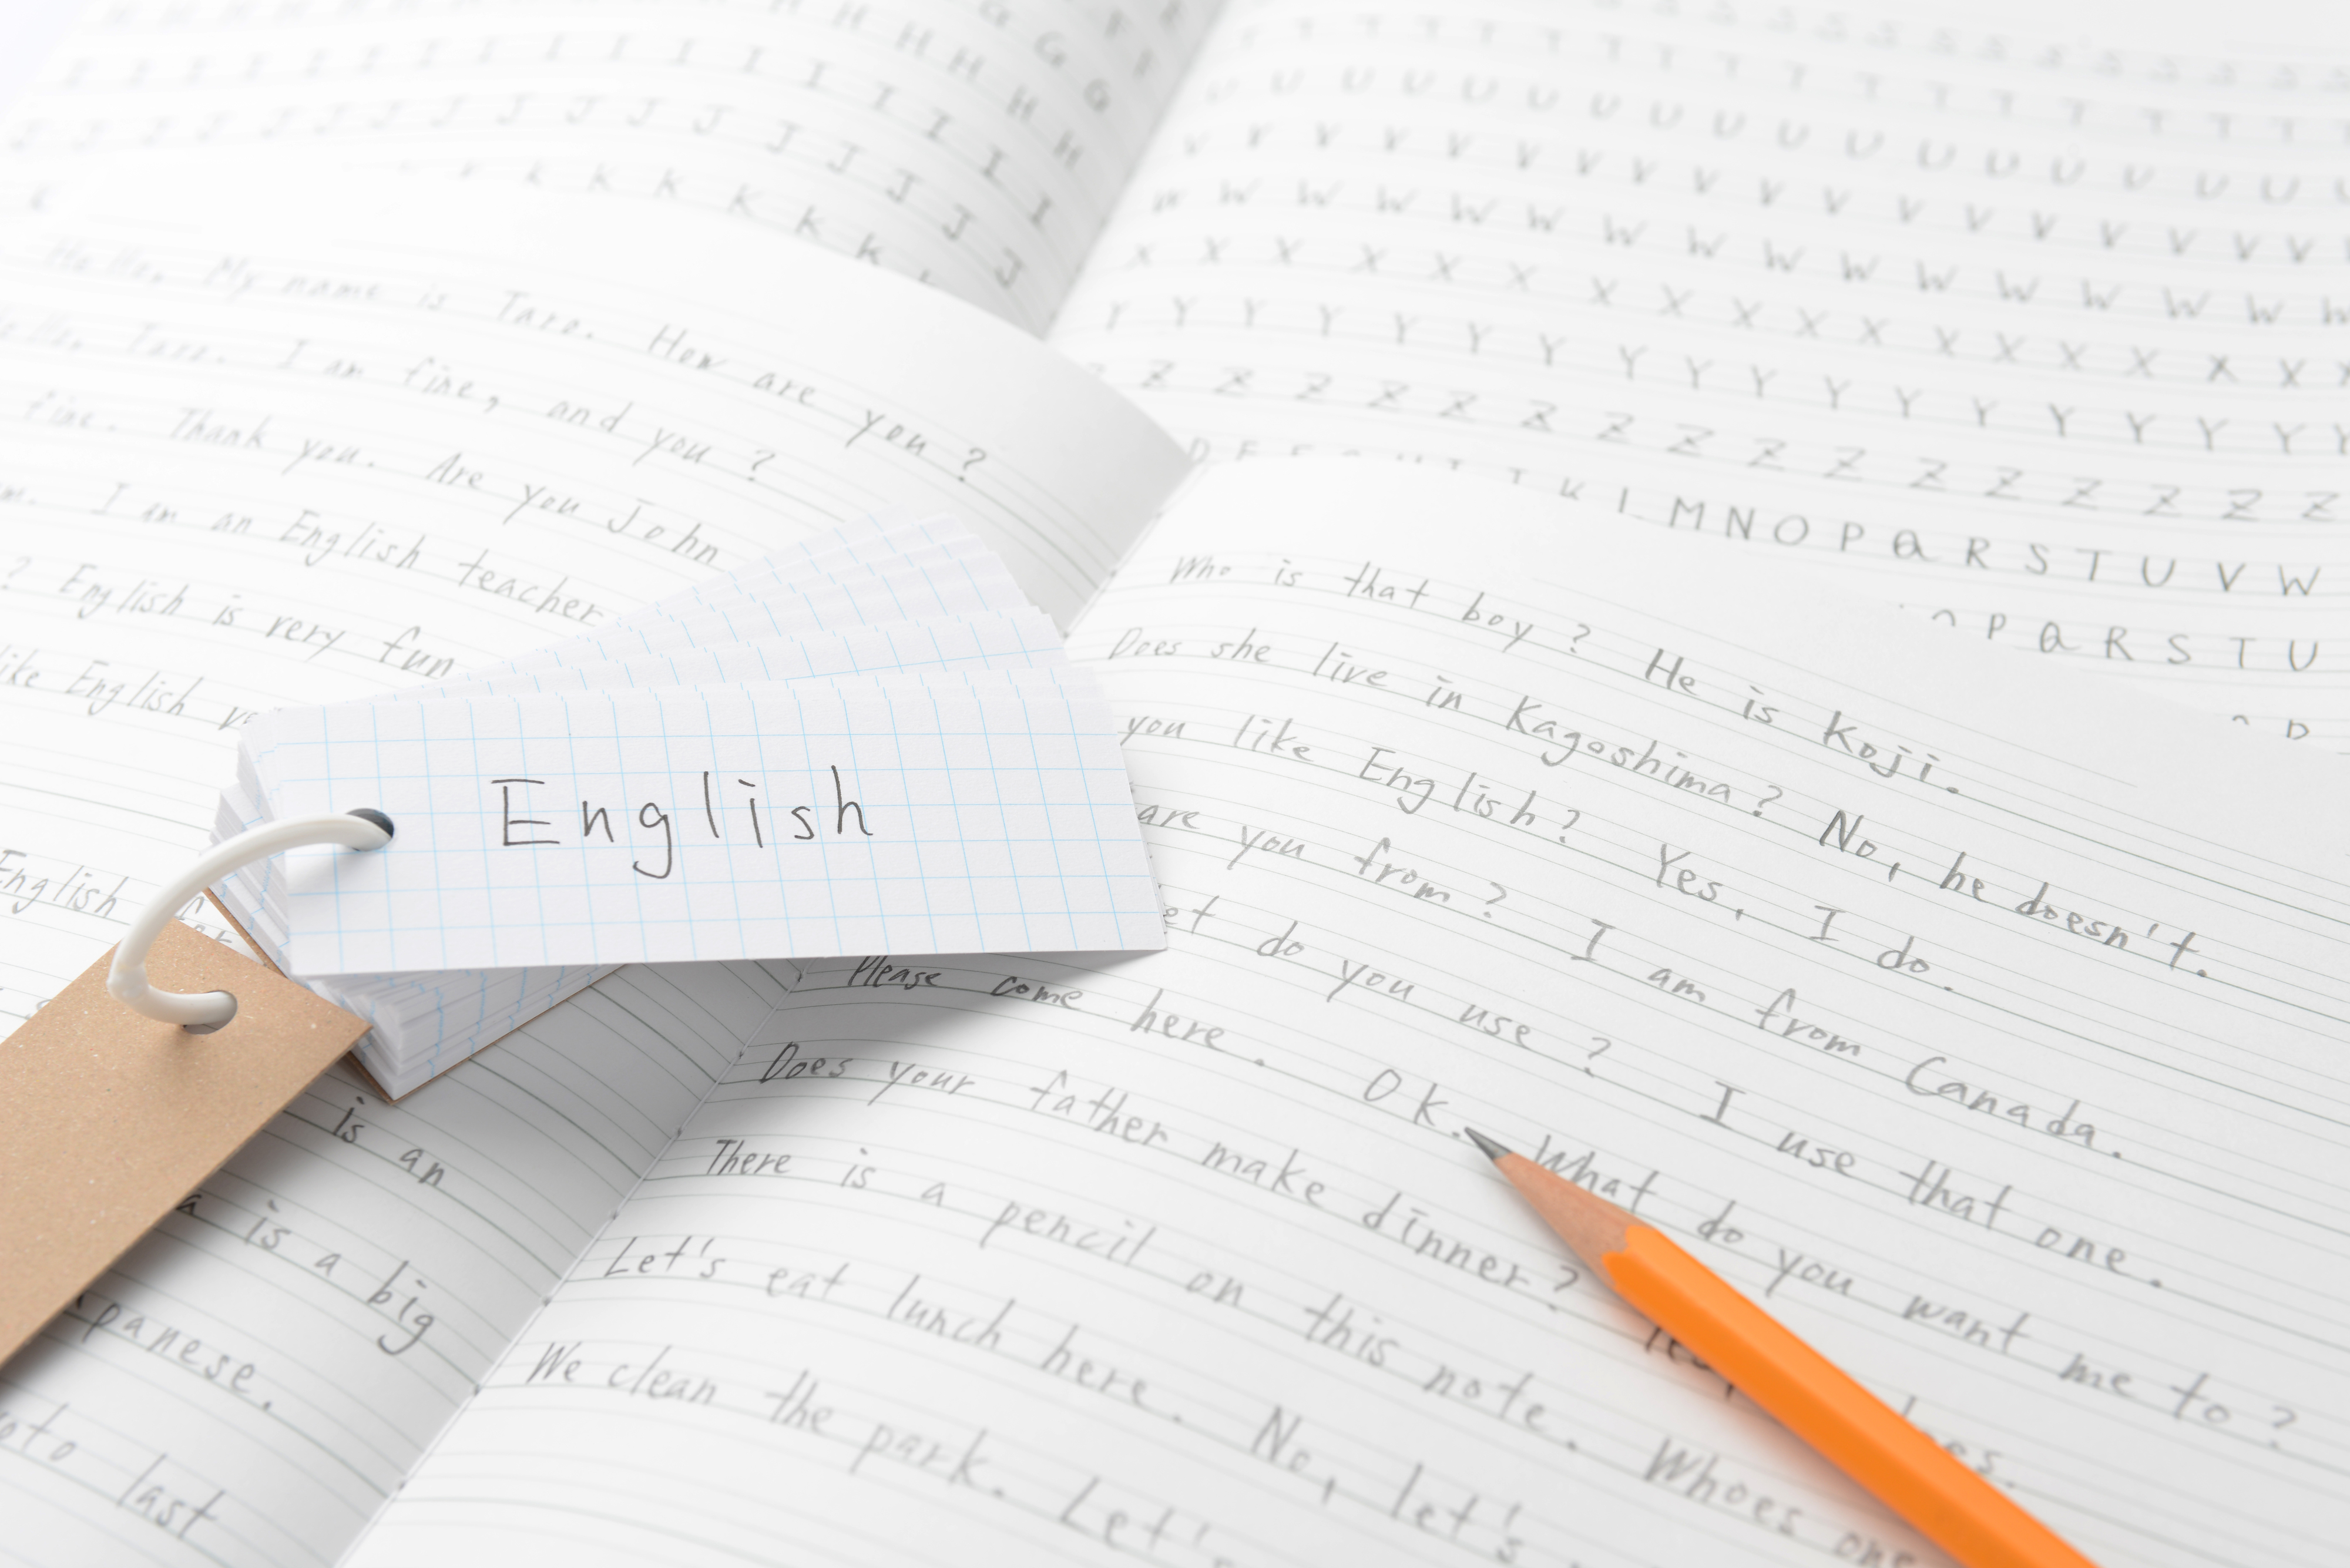 H H H H H H
I I I I I I I I I I I I I I I
J J J J J J J J J J J J J J J
K K K K K K
Hello. My name is Taro. How are you?
Taro. I am fine, and you?
fine. Thank you. Are you John
I am an English teacher
? English is very fun
like English
English
English
is an
a is a big
panese.
oto last
U U U U U U U U U U U U U U U U U
V V V V V V V V V V V V V V V V
W W W W W W W W W W W W W W
X X X X X X X X X X X X X X X
Y Y Y Y Y Y Y Y Y Y Y Y Y Y Y Y
Z Z Z Z Z Z Z Z Z Z Z Z Z Z Z
M N O P Q R S T U V W
P Q R S T U
Who is that boy? He is Koji.
Does she live in Kagoshima? No, he doesn't.
you like English? Yes, I do.
are you from? I am from Canada.
et do you use? I use that one.
Please come here. OK. What do you want me to?
Does your father make dinner?
There is a pencil on this note. Whoes one
Let's eat lunch here. No, let's
We clean the park. Let's